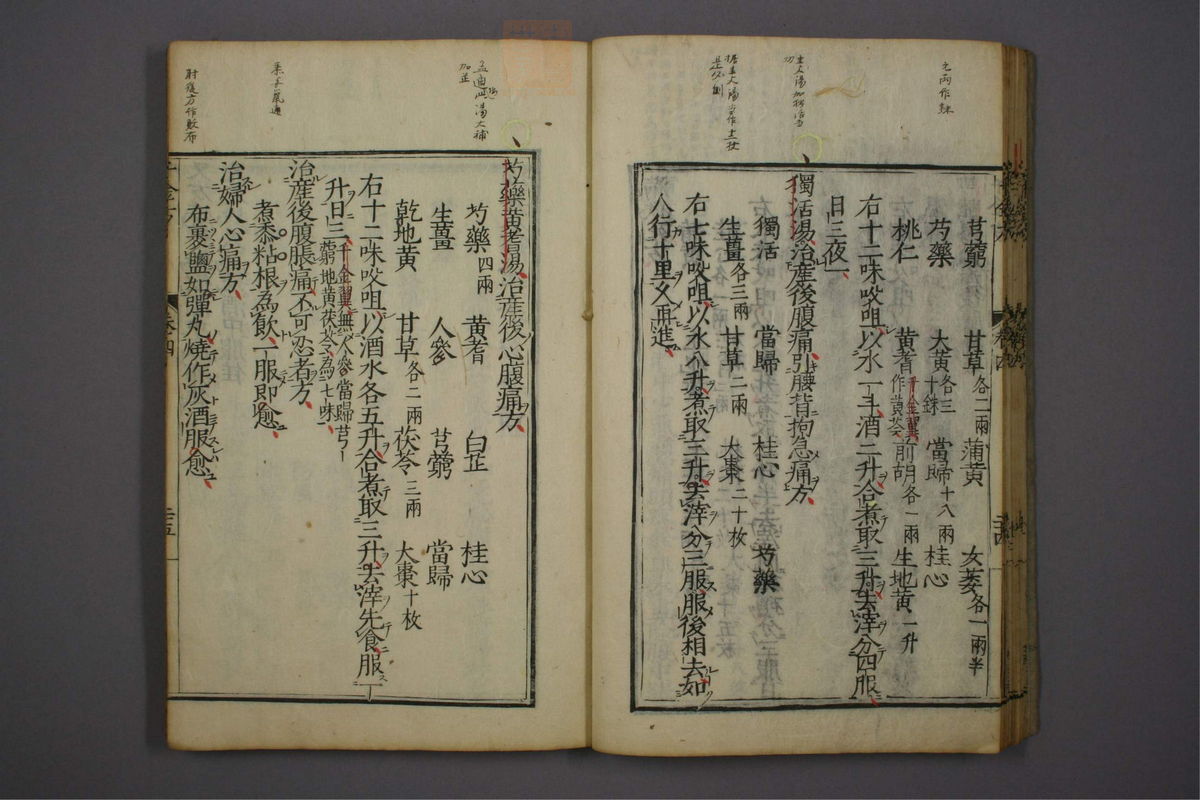 芎藭 甘草各二兩 蒲黃 女萎各一兩半
芍藥 大黃各三十銖 當歸十八兩 桂心
桃仁 黃耆千金翼作黃芩 前胡各一兩 生地黃一升
右十二味㕮咀以水一斗酒二升合煮取三升去滓分四服
日三夜一
獨活湯治產後腹痛引腰背拘急痛方
獨活 當歸 桂心 芍藥
生薑各三兩 甘草二兩 大棗二十枚
右七味㕮咀以水八升煮取三升去滓分三服服後相去如
人行十里又再進
芍藥黃耆湯治產後心腹痛方
芍藥四兩 黃耆 白芷 桂心
生薑 人參 芎藭 當歸
乾地黃 甘草各二兩 茯苓三兩 大棗十枚
右十二味㕮咀以酒水各五升合煮取三升去滓先食服一
升日三千金翼無人參當歸芎藭地黃茯苓為七味
治產後腹脹痛不可忍者方
煮黍粘根為飲一服即愈
治婦人心痛方
布裹鹽如彈丸燒作灰酒服愈